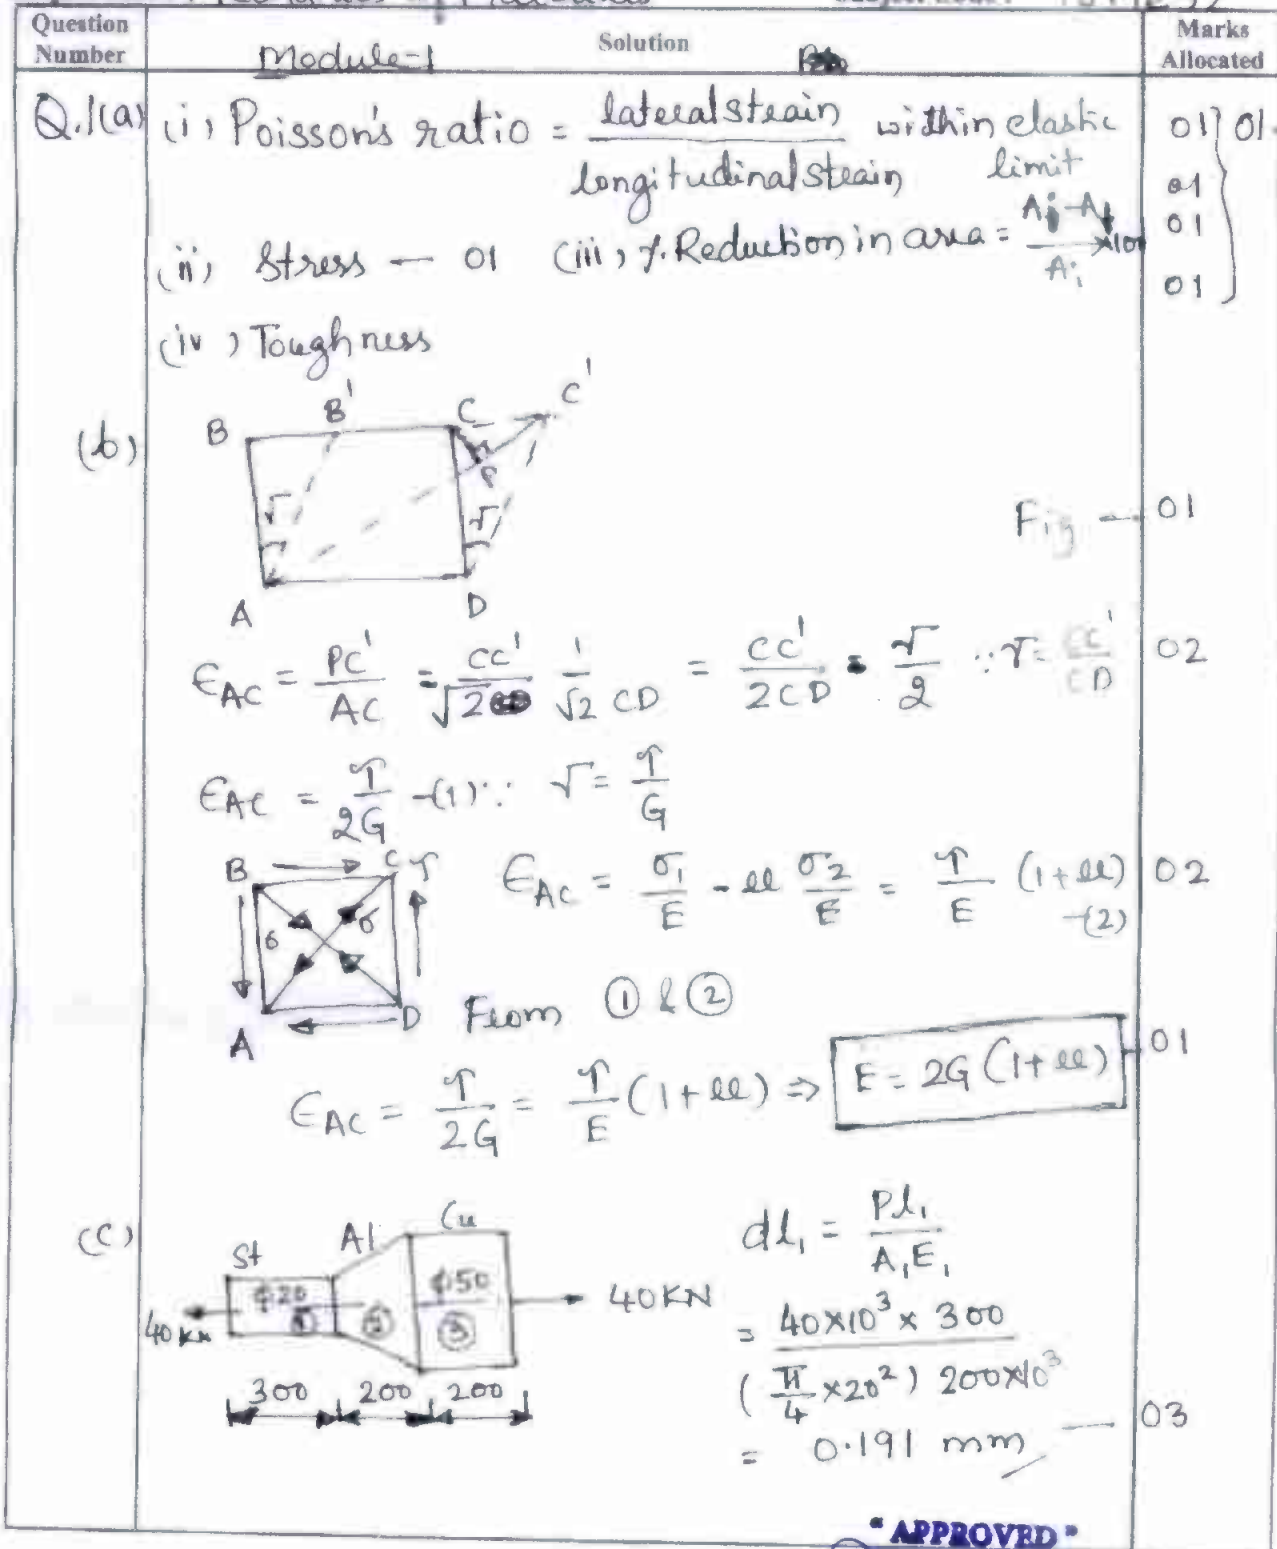 Question Number Solution Marks Allocated
Module-1
Q.1(a) (i) Poisson's ratio = lateral strain / longitudinal strain within elastic limit 01 } 01
01
(ii) Stress — 01 (iii) % Reduction in area = Ai - Af / Ai ×100 01
01
(iv) Toughness
(b) B B' C C'
γ γ P
Fig — 01
A D
ϵAC = PC' / AC = CC' / √2 1 / √2 CD = CC' / 2CD = γ / 2 ∵ γ = CC' / CD 02
ϵAC = τ / 2G -(1) ∵ γ = τ / G
B C τ
ϵAC = σ1 / E - μ σ2 / E = τ / E (1+μ) -(2) 02
σ σ
A D From ① & ②
ϵAC = τ / 2G = τ / E (1+μ) ⇒ E = 2G (1+μ) 01
(c) St Al Cu
dl1 = Pl1 / A1E1
40 KN ϕ20 ① ② ϕ50 ③ 40 KN
= 40×10³ × 300 / (π/4 ×20²) 200×10³
300 200 200
= 0.191 mm — 03
"APPROVED"